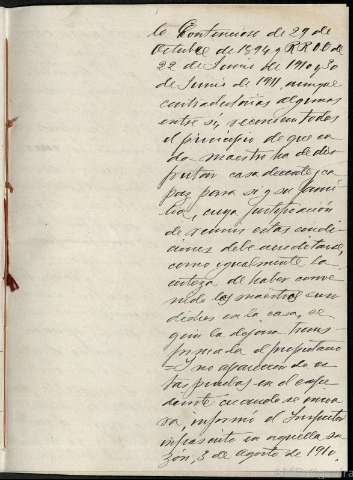 lo Contencioso de 29 de
Octubre de 1894 y RR OO de
22 de Junio de 1910 y 30
de Junio de 1911, aunque
contradictorias algunas
entre sí, reconocen todos
el principio de que ca-
da maestro ha de dis-
frutar casa decente y ca-
paz para sí y su fami-
lia, cuya justificación
de reunir estas condi-
ciones debe acreditarse,
como igualmente la
certeza de haber conve-
nido los maestros
en la casa, se-
gún la dejara
el propietario
= Y no aparecen de es-
tas pruebas en el expe-
diente cuando se
informó el Inspector
infrascrito en aquella sa-
zón, 3 de Agosto de 1910.